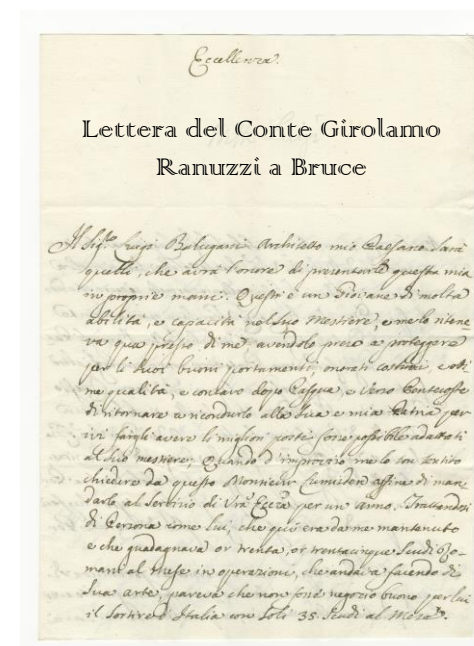 Eccellenza.
Lettera del Conte Girolamo
Ranuzzi a Bruce
Il Sig.re Luigi Balugani Architetto mio Paesano sarà
quello, che avrà l'onore di presentarle questa mia
in proprie mani. Questi è un Giovane di molta
abilità, e capacità nel suo Mestiere, e me lo ritene-
va qua presso di me avendolo preso a proteggere
per li suoi buoni portamenti, onorati costumi, e otti-
me qualità, e contavo dopo Pasqua, e verso Pentecoste
di ritornare e ricondurlo alla sua e mia Patria per
ivi fargli avere li migliori posti fosse possibile adattati
al suo mestiere, Quando d'improviso me lo son sentito
chiedere da questo Monsieur Lumisden affine di man-
darlo al servizio di Vra Ecc.za per un anno. Trattandosi
di Persona come lui, che qui era da me mantenuto
e che guadagnava or trenta, or trentacinque Scudi Ro-
mani al Mese in operazioni, che andava facendo di
sua arte, pareva che non fosse negozio buono per lui
il sortire d'Italia con soli 35 Scudi al Mese.